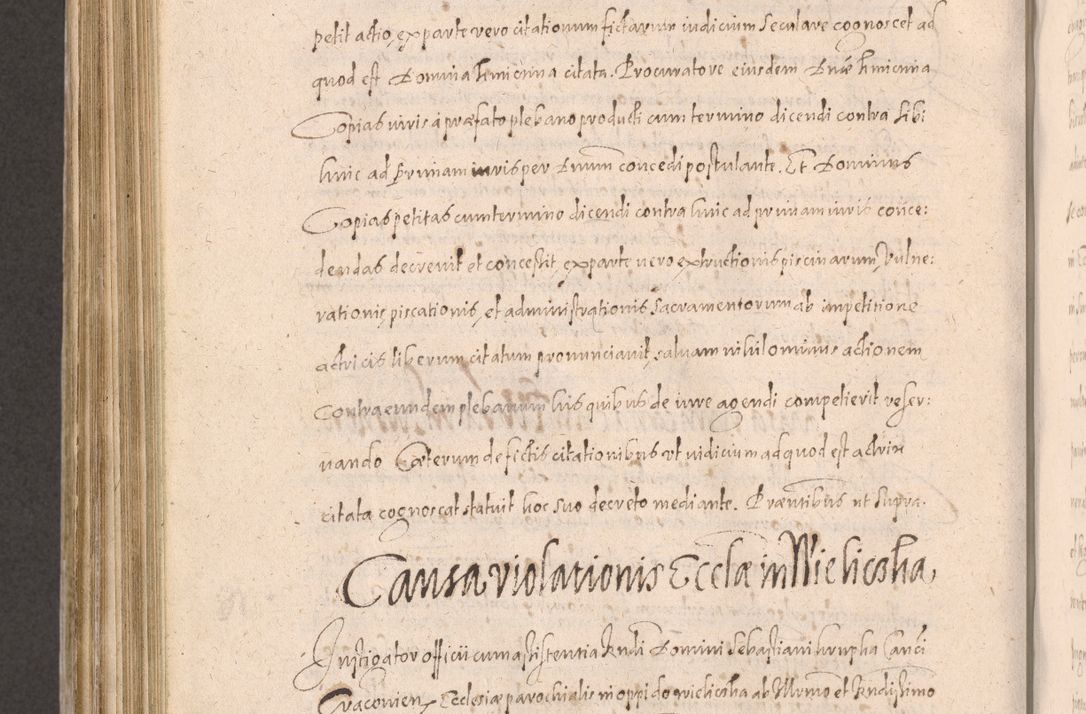 petit actio, ex parte vero citationum fictarum iudicium seculare cognoscet ad
quod est Domina Heminina citata. Procuratore eiusdem Dnæ Hminina
Copias iuris a præfato plebano producti cum termino dicendi contra sibi
hinc ad Primam iuris per Dnum concedi postulante. Et Dominus
Copias petitas cum termino dicendi contra hinc ad primam iuris conce:
dendas decrevit et concessit, ex parte uero extructionis piscinarum, Vulne:
rationis, piscationis, et administrationis sacramentorum ab impetitione
actricis liberum citatum pronunciavit, saluam nihilominus actionem
Contra eundem plebanum his quibus de iure agendi competierit reser:
uando Cæterum de fictis citationibus ut iudicium ad quod est actrix
citata cognoscat statuit hoc suo decreto mediante. Præntibus ut supra.
Causa violationis Ecclæ in Wielicska
Instigator officii cum assistentia Rndi Domini Sebastiani krupka Canci
Cracovien Ecclesiæ parochialis in oppido wielicska ab Illrmo et Rndissimo